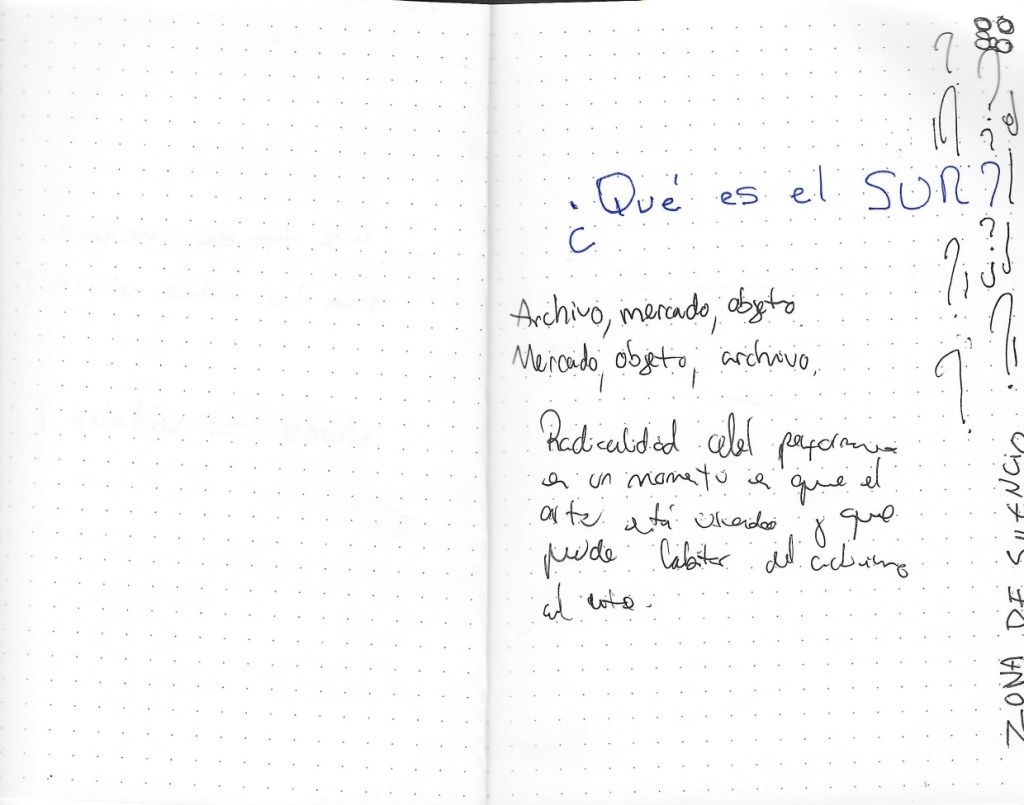 ¿Qué es el SUR?
Archivo, mercado, objeto
Mercado, objeto, archivo.
Radicalidad del performance
en un momento en que el
arte está y que
puede habitar del activismo
al arte.
ZONA DE SILENCIO